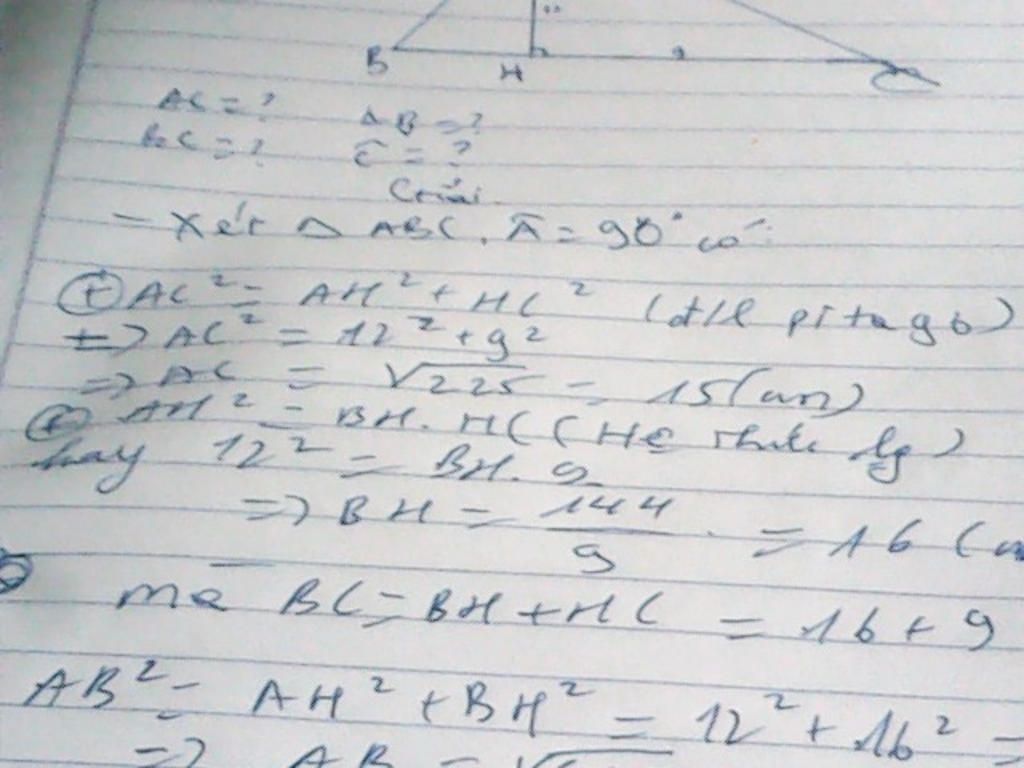 B H 9
AC = ? AB = ?
BC = ? Ĉ = ?
Giải
- Xét △ ABC, Â = 90° có:
+ AC² = AH² + HC² (đ/l pitago)
=> AC² = 12² + 9²
=> AC = √225 = 15 (cm)
+ AH² = BH. HC (Hệ thức lg)
hay 12² = BH. 9
=> BH = 144/9 = 16 (
mà BC = BH + HC = 16 + 9
AB² = AH² + BH² = 12² + 16² =
=> AB = √